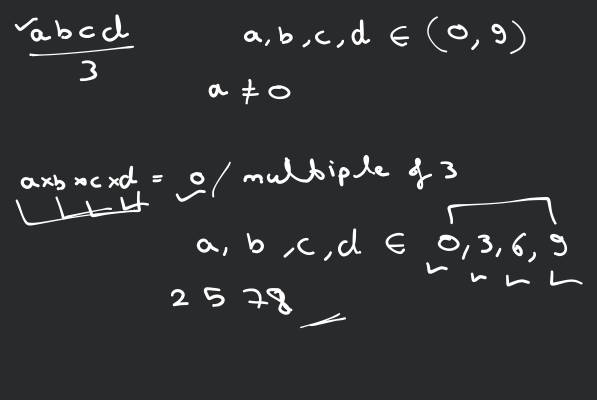 abcd a,b,c,d ∈ (0,9)
3
a ≠ 0
a×b×c×d = 0/ multiple of 3
a, b, c, d ∈ 0,3,6,9
2 5 7 8